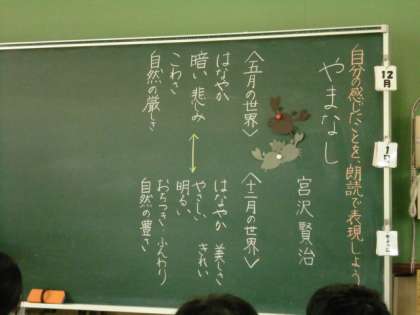 自分の感じたことを、朗読で表現しよう
やまなし
宮沢賢治
〈五月の世界〉
はなやか
暗い 悲み
こわさ
自然の厳しさ
〈十二月の世界〉
はなやか 美しさ
やさしい きれい
明るい
おちつき ふんわり
自然の豊さ
12月